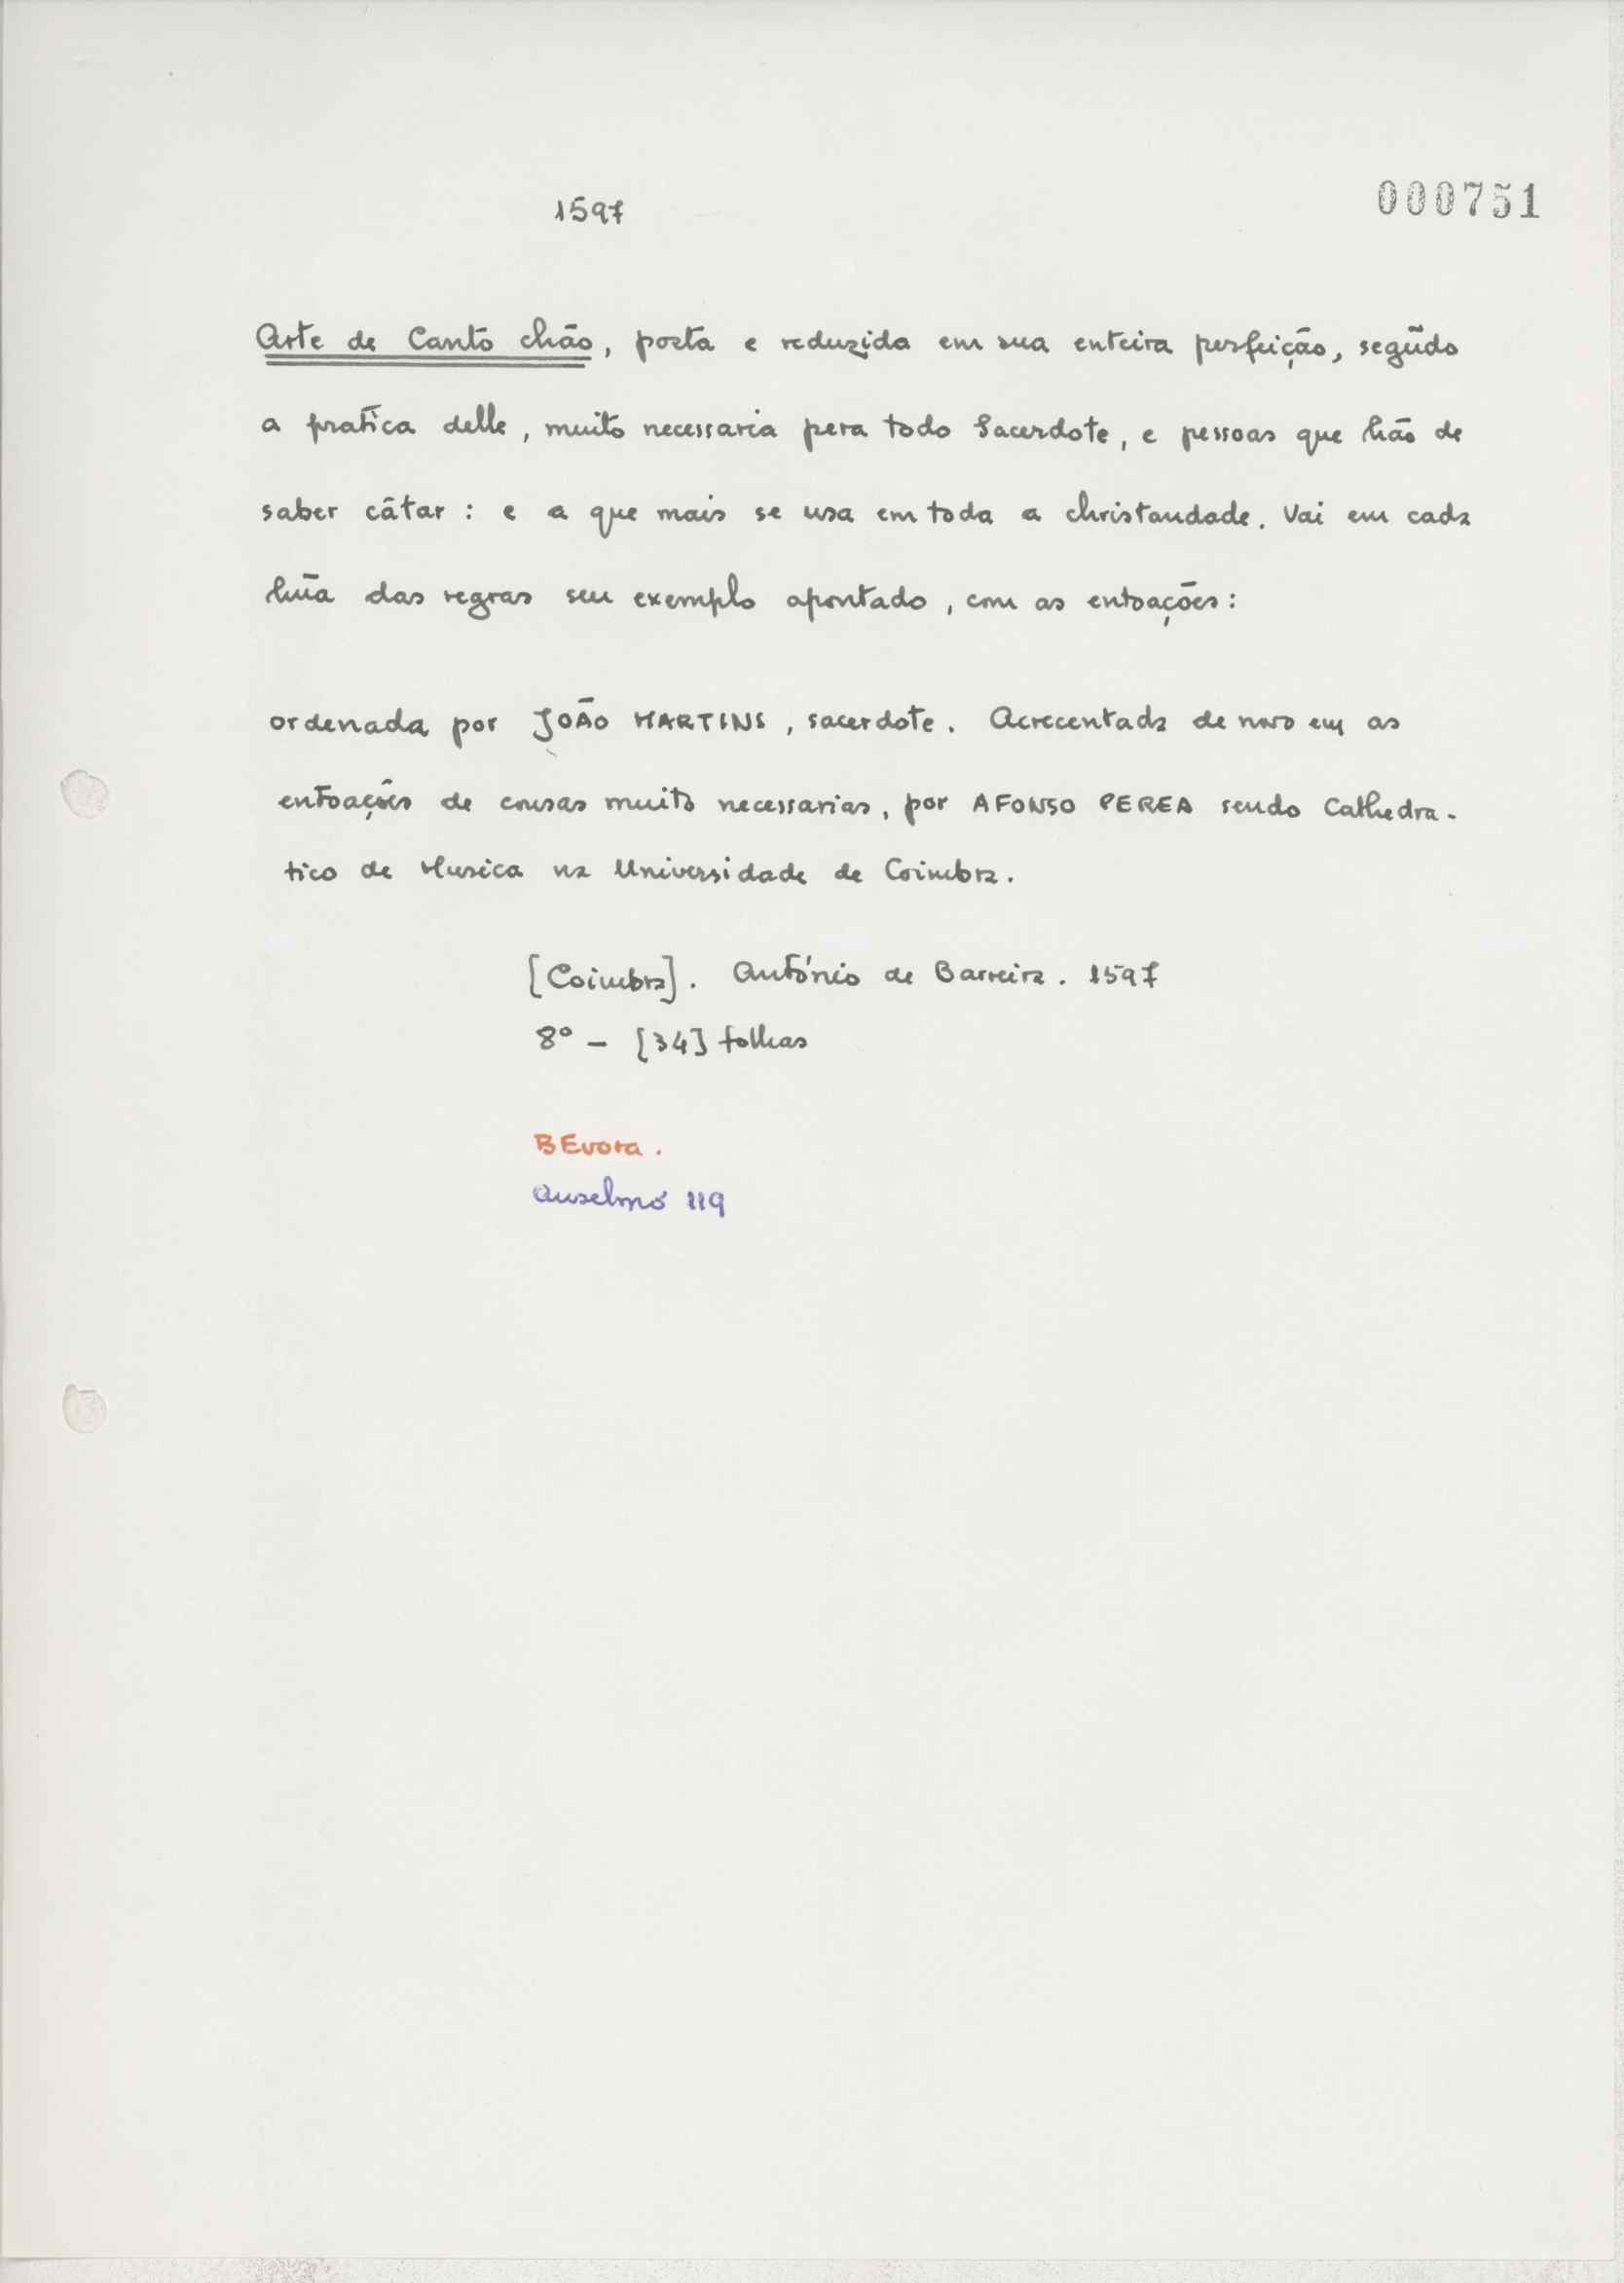 1597
000751
Arte de Canto chão, posta e reduzida em sua enteira perfeição, segũdo
a pratica delle, muito necessaria pera todo Sacerdote, e pessoas que hão de
saber cãtar : e a que mais se usa em toda a christandade. Vai em cada
hũa das regras seu exemplo apontado, com as entoações:
ordenada por JOÃO MARTINS, sacerdote. Acrecentada de novo em as
entoações de cousas muito necessarias, por AFONSO PEREA sendo Cathedra-
tico de Musica na Universidade de Coimbra.
[Coimbra]. António de Barreira. 1597
8º - [34] folhas
BEvora.
Anselmo 119